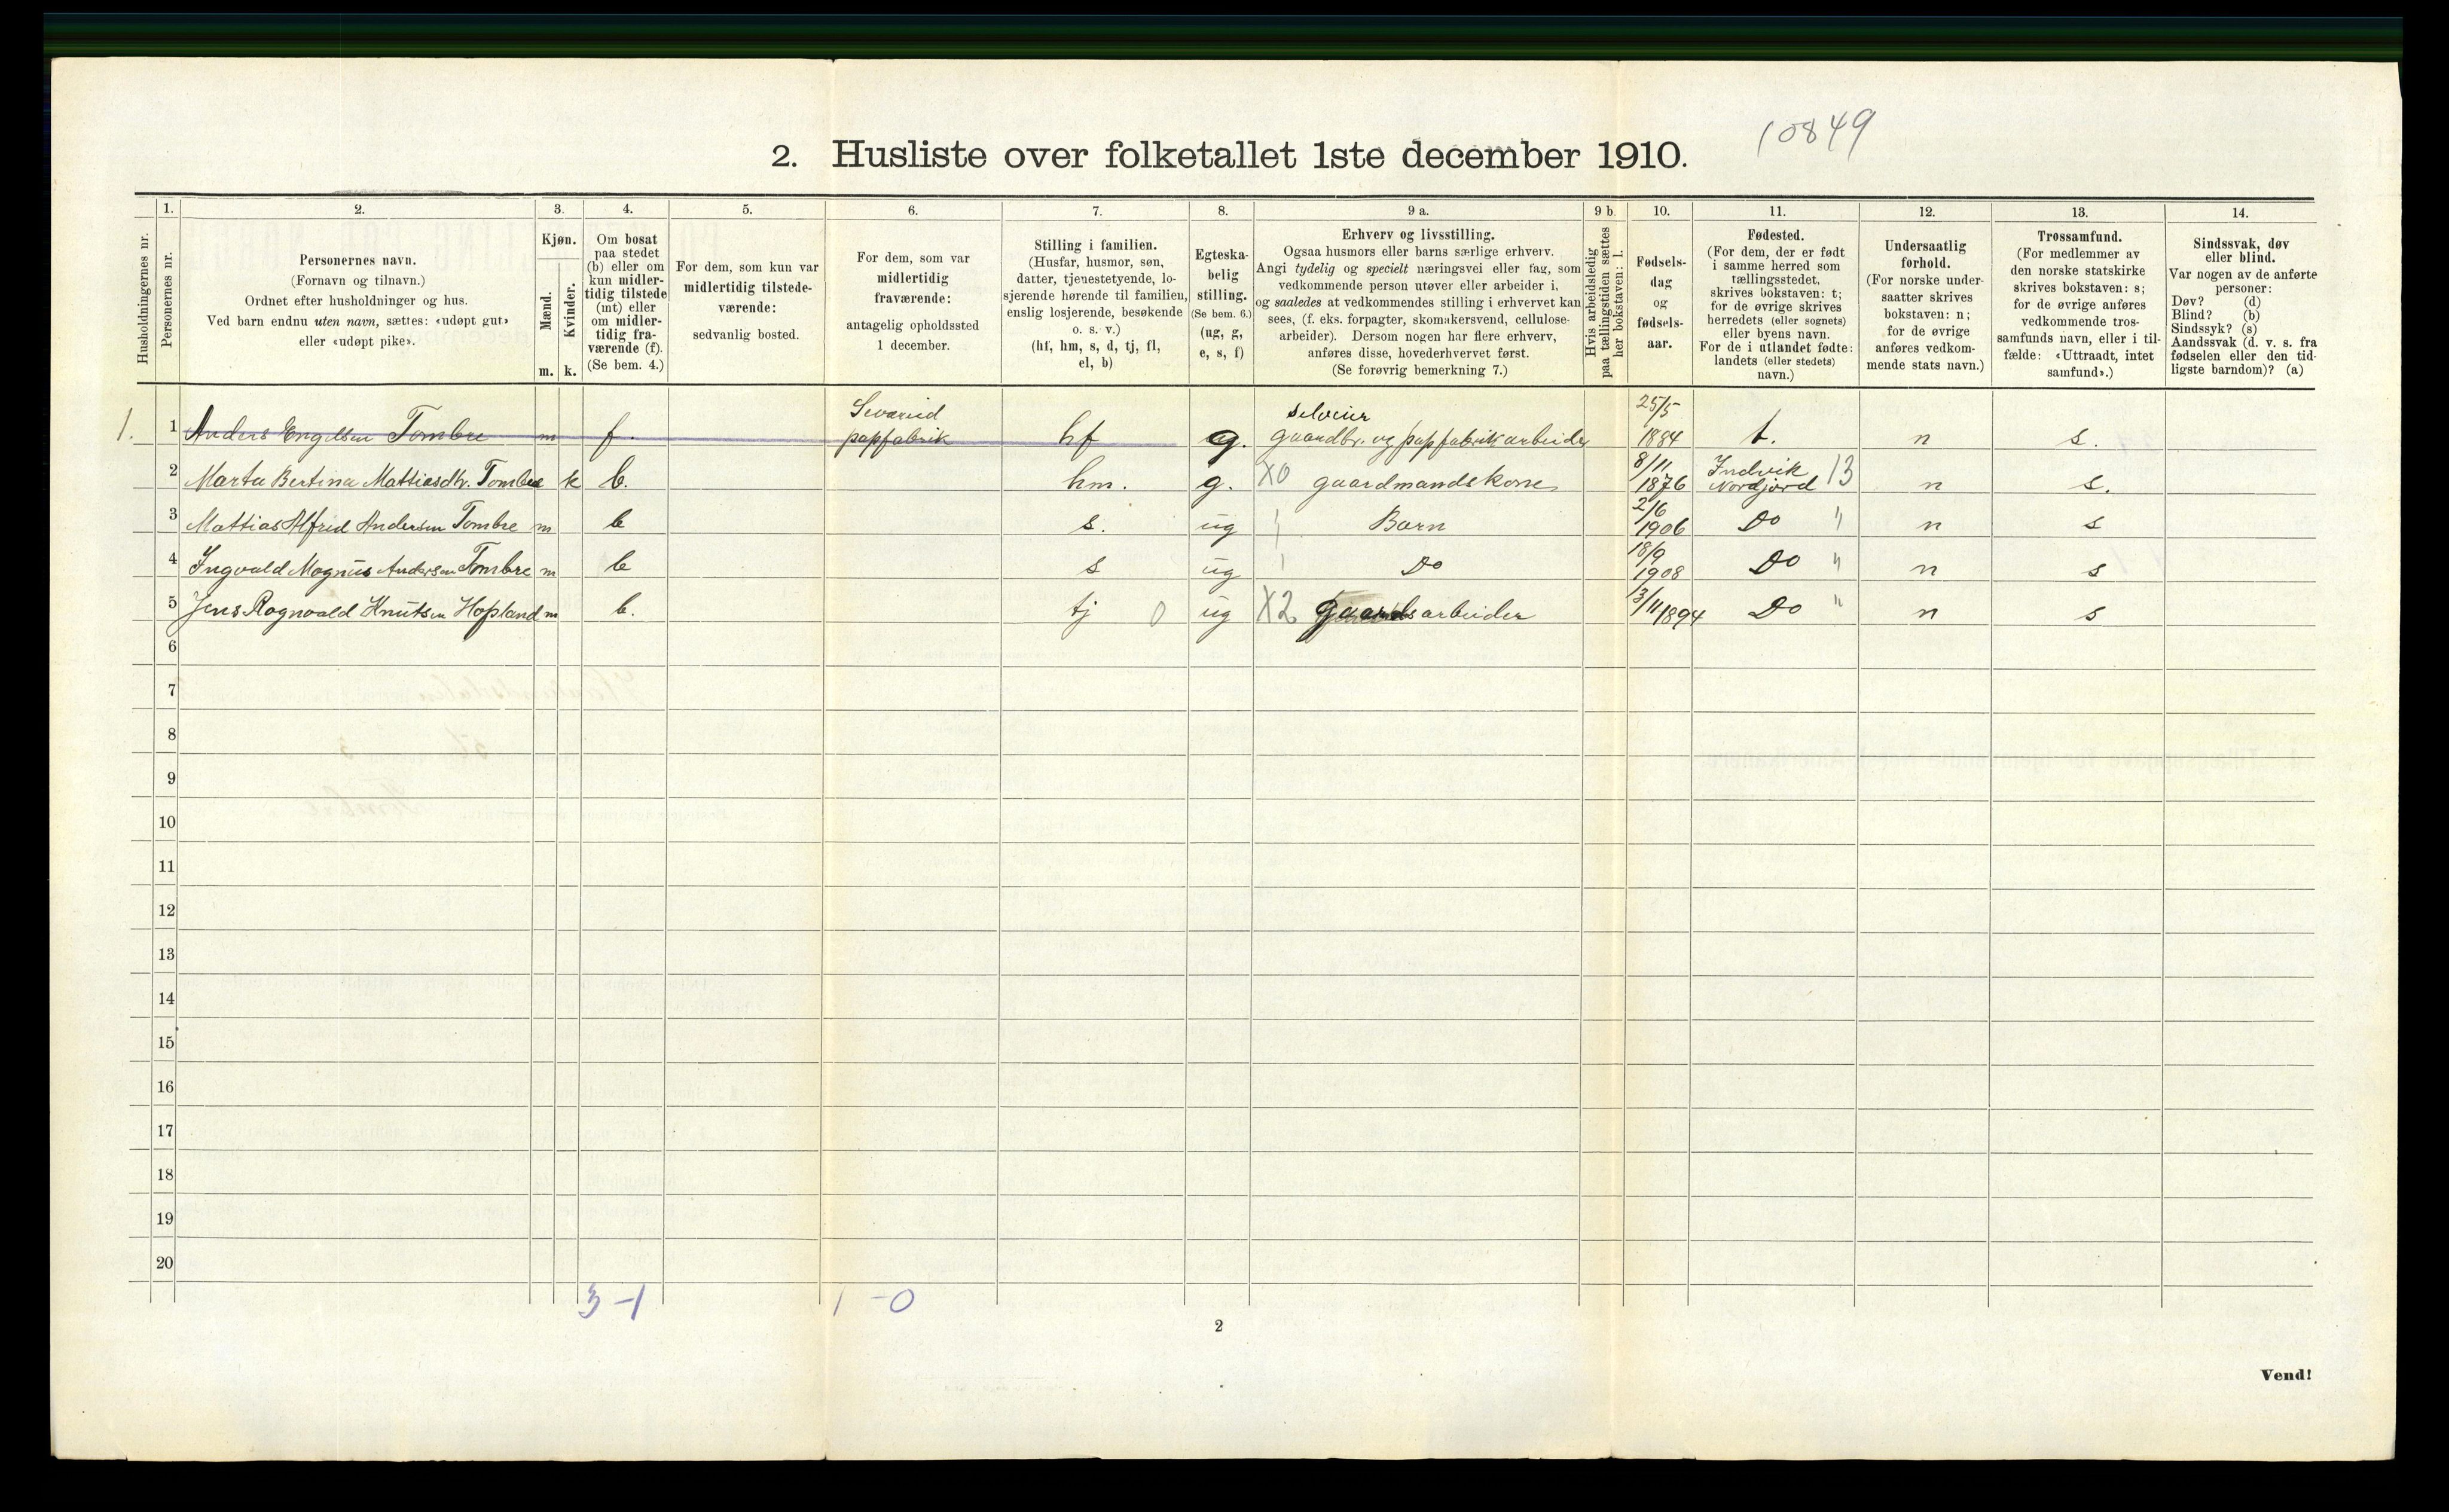 10849
2. Husliste over folketallet 1ste december 1910.
Husholdningernes nr.
1.
Personernes nr.
2.
Personernes navn.
(Fornavn og tilnavn.)
Ordnet efter husholdninger og hus.
Ved barn endnu uten navn, sættes: «udøpt gut»
eller «udøpt pike».
3.
Kjøn.
Mænd.
Kvinder.
m. k.
4.
Om bosat
paa stedet
(b) eller om
kun midler-
tidig tilstede
(mt) eller
om midler-
tidig fra-
værende (f).
(Se bem. 4.)
5.
For dem, som kun var
midlertidig tilstede-
værende:
sedvanlig bosted.
6.
For dem, som var
midlertidig
fraværende:
antagelig opholdssted
1 december.
7.
Stilling i familien.
(Husfar, husmor, søn,
datter, tjenestetyende, lo-
sjerende hørende til familien,
enslig losjerende, besøkende
o. s. v.)
(hf, hm, s, d, tj, fl,
el, b)
8.
Egteska-
belig
stilling.
(Se bem. 6.)
(ug, g,
e, s, f)
9 a.
Erhverv og livsstilling.
Ogsaa husmors eller barns særlige erhverv.
Angi tydelig og specielt næringsvei eller fag, som
vedkommende person utøver eller arbeider i,
og saaledes at vedkommendes stilling i erhvervet kan
sees, (f. eks. forpagter, skomakersvend, cellulose-
arbeider). Dersom nogen har flere erhverv,
anføres disse, hovederhvervet først.
(Se forøvrig bemerkning 7.)
9 b
Hvis arbeidsledig
paa tællingstiden sættes
her bokstaven: l.
10.
Fødsels-
dag
og
fødsels-
aar.
11.
Fødested.
(For dem, der er født
i samme herred som
tællingsstedet,
skrives bokstaven: t;
for de øvrige skrives
herredets (eller sognets)
eller byens navn.
For de i utlandet fødte:
landets (eller stedets)
navn.)
12.
Undersaatlig
forhold.
(For norske under-
saatter skrives
bokstaven: n;
for de øvrige
anføres vedkom-
mende stats navn.)
13.
Trossamfund.
(For medlemmer av
den norske statskirke
skrives bokstaven: s;
for de øvrige anføres
vedkommende tros-
samfunds navn, eller i til-
fælde: «Uttraadt, intet
samfund».)
14.
Sindssvak, døv
eller blind.
Var nogen av de anførte
personer:
Døv? (d)
Blind? (b)
Sindssyk? (s)
Aandssvak (d. v. s. fra
fødselen eller den tid-
ligste barndom)? (a)
1. 1 Anders Engelsen Tombre m f. papfabrik hf g. selveier gaardbr. og papfabrikarbeider 25/5 1884 t. n s.
2 Marta Bertina Mattiasdtr. Tombre k b. hm. g. X0 gaardmandskone 8/11 1876 Indvik Nordfjord 13 n s.
3 Mattias Alfred Andersen Tombre m b s. ug Barn 2/6 1906 Do " n s
4 Ingvald Magnus Andersen Tombre m b s ug Do 18/9 1908 Do " n s
5 Jens Ragnvald Knutsen Hopland m b. tj 0 ug X2 Gaardsarbeider 13/11 1894 Do " n s
6
7
8
9
10
11
12
13
14
15
16
17
18
19
20
3-1 1-0
2
Vend!